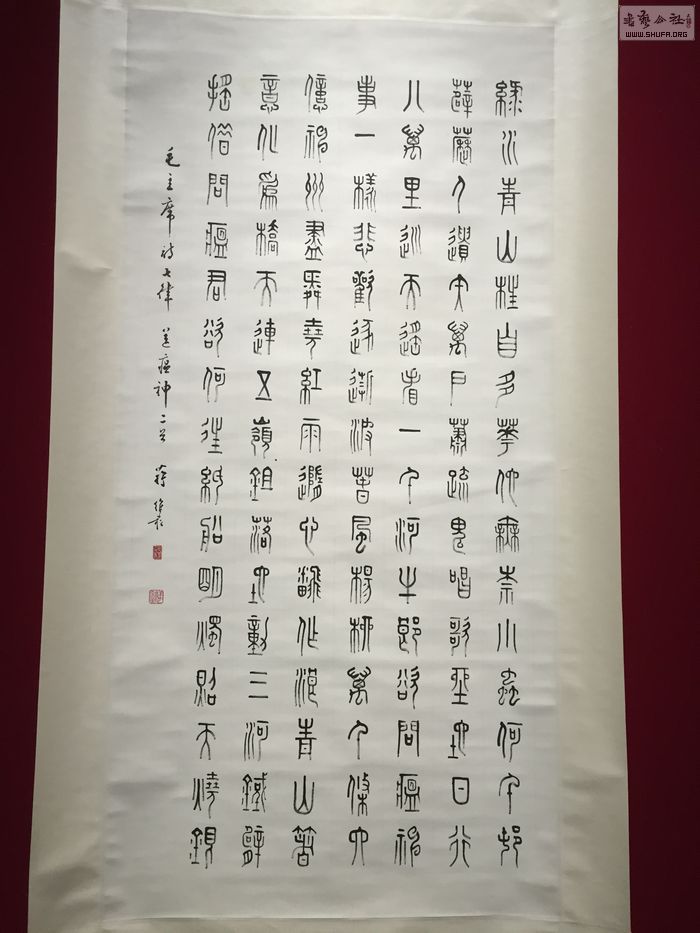 綠水青山枉自多華佗無奈小蟲何千邨
薜荔人遺矢萬戶蕭疏鬼唱歌坐地日行
八萬里巡天遙看一千河牛郎欲問瘟神
事一樣悲歡逐逝波春風楊柳萬千條六
億神州盡舜堯紅雨隨心翻作浪青山著
意化爲橋天連五嶺鉏落地動三河鐵臂
搖借問瘟君欲何往紙船明燭照天燒銀
毛主席詩七律 送瘟神二首 蔣維崧
書藝公社
WWW.SHUFA.ORG